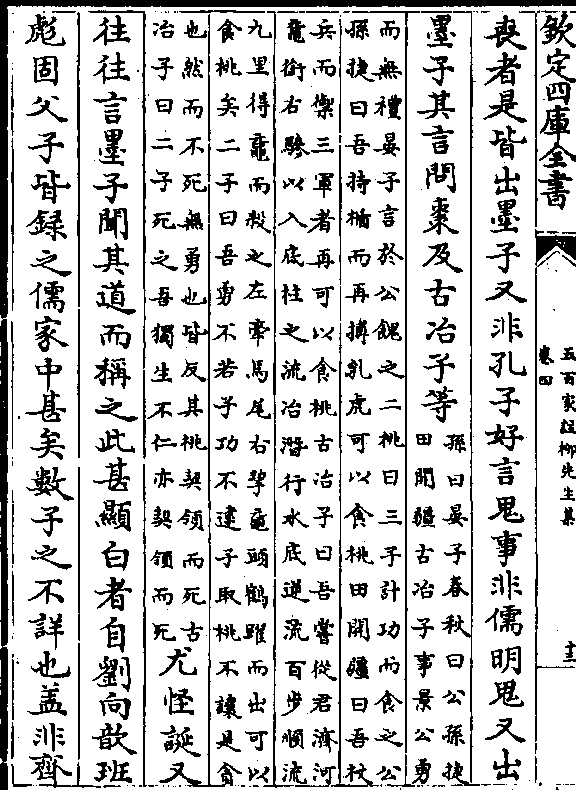 欽定四庫全書
五百家註柳先生集
卷四
十三
喪者是皆出墨子又非孔子好言鬼事非儒明鬼又出
墨子其言問棗及古冶子等
孫曰晏子春秋曰公孫捷
田開疆古冶子事景公勇
而無禮晏子言於公餽之二桃曰三子計功而食之公
孫捷曰吾持楯而再搏乳虎可以食桃田開疆曰吾杖
兵而禦三軍者再可以食桃古冶子曰吾嘗從君濟河
黿銜右驂以入底柱之流冶潛行水底逆流百步順流
九里得黿而殺之左牽馬尾右挈黿頭鶴躍而出可以
食桃矣二子曰吾勇不若子功不逮子取桃不讓是貪
也然而不死無勇也皆反其桃契領而死古
冶子曰二子死之吾獨生不仁亦契領而死
尤怪誕又
往往言墨子聞其道而稱之此甚顯白者自劉向歆班
彪固父子皆録之儒家中甚矣數子之不詳也盖非齊